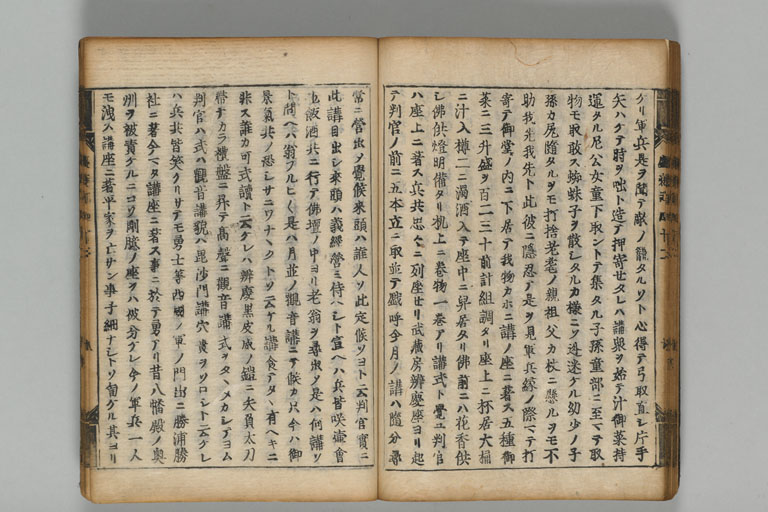 クリ軍兵是ヲ聞テ敵ノ籠タルソト心得テ弓取直シ片手
矢ハケテ時ヲ咄ト造テ押寄せタレハ講衆ヲ始テ汁御菜持
運タル尼公女童下取ントテ集タル子孫童部ニ至マテ取
物モ取敢ス蜘蛛子ヲ散シタルカ様ニソ逃迷ケル幼少ノ子
孫カ尻隨タルヲモ打捨老老ノ親祖父カ杖ニ懸ルヲモ不
助我先我先ト此彼ニ隠忍テ是ヲ見軍兵縁ノ際マテ打
寄テ御堂ノ内ニ下居テ我物カホニ講ノ座ニ著ス五種御
菜ニ三升盛ヲ百二三十前計組調タリ座上ニ杯居大桶
ニ汁入樽ニニ濁酒入テ座中ニ舁居タリ佛前ニハ花香供
シ佛供燈明備タリ机上ニ巻物一巻アリ講式ト覺ユ判官
ハ座上ニ著ス兵共思々ニ列座せリ武蔵房辨慶座ヨリ起
テ判官ノ前ニ五本立ニ取並テ戯呼今月ノ講ハ隨分尋
常ニ營出ソ覺候來頭ハ誰人ソ此定候ソヨト云判官實ニ
此講目出シ來頭ハ義經營ミ侍ヘシト宣ヘハ兵皆咲壺會
也飯酒共ニ行テ佛壇ノ中ヨリ老翁ヲ尋出ソ是ハ何講ソ
ト問ヘハ翁フルヒく是ハ月並ノ觀音講ニテ候カ只今ハ御
景氣共ノ恐シサニワナヽクトソ云ケル講食テタヽ有ヘキニ
非ス誰カ可式讀ト云ケレハ辨慶黒皮威ノ鎧ニ矢負太刀
帯ナカラ禮盤ニ昇テ高聲ニ觀音講式ヲタヽメカシテヨム
判官ハ式ハ觀音講貌ハ毘沙門講穴貴ヲソロシト云ケレ
ハ兵共皆笑クリサテモ勇士等西國ノ軍ノ門出ニ勝浦勝
社ニ著今マタ講座ニ著ス事ニ於テ勇アリ昔八幡殿ノ奥
州ヲ被責ケルニコソ剛臆ノ座ヲハ被分ケレ今ノ軍兵一人
モ洩ス講座ニ著平家ヲ亡サン事子細ナシトソ勇ケル其ヨリ